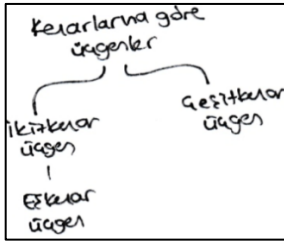 Kenarlarına göre
üçgenler
İkizkenar
üçgen
Çeşitkenar
üçgen
Eşkenar
üçgen